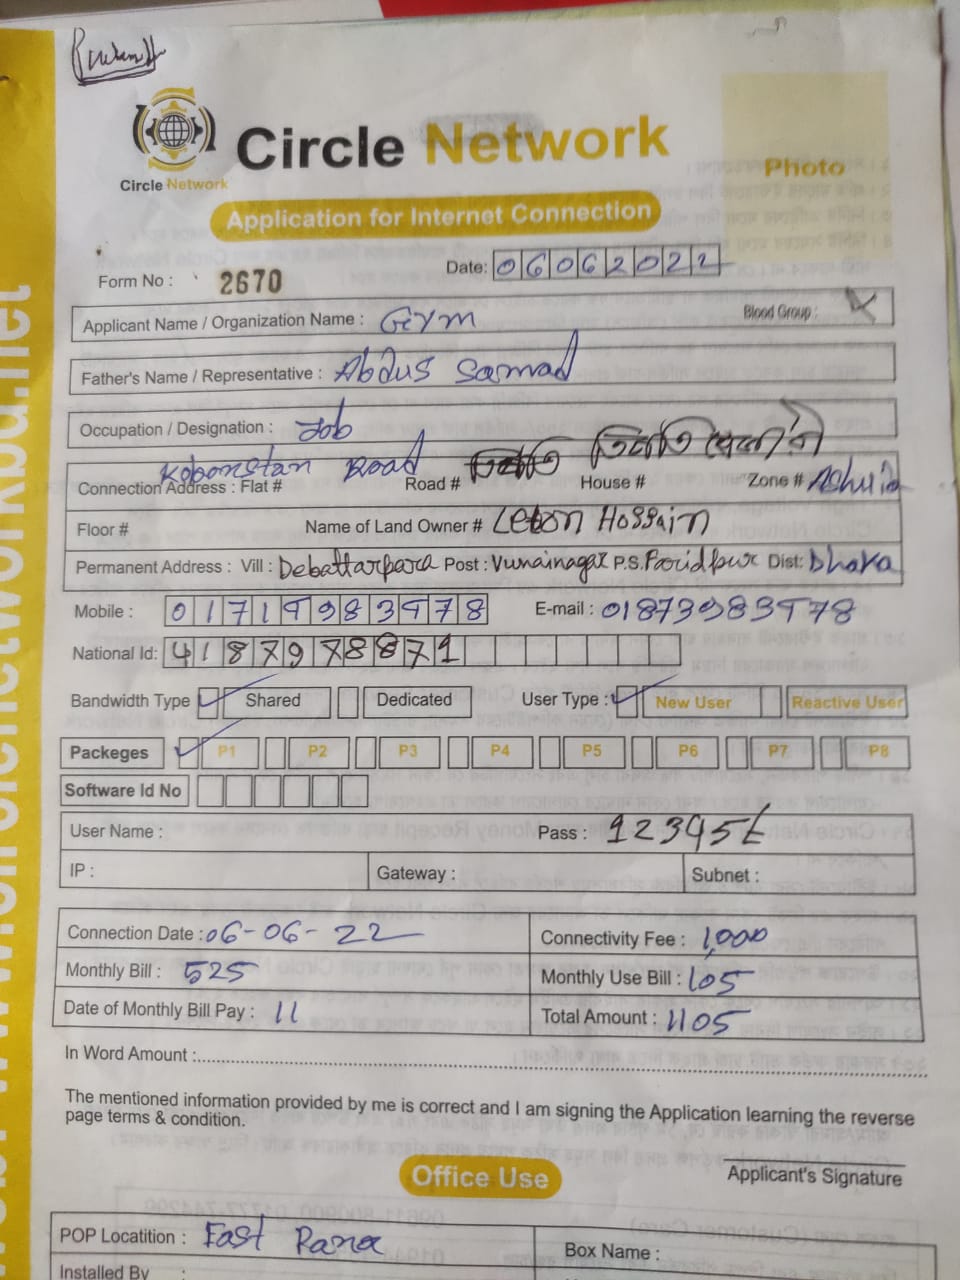 Circle Network
Circle Network
Photo
Application for Internet Connection
Form No : 2670
Date: 06062022
Applicant Name / Organization Name : GYM
Blood Group :
Father's Name / Representative : Abdus Samad
Occupation / Designation : Job
Kobonstan Road
Connection Address : Flat # Road # House # Zone # Ashulia
Floor # Name of Land Owner # Leton Hossain
Permanent Address : Vill : Debattarpara Post : Vunainagar P.S. Faridpur Dist: Dhaka
Mobile : 01719983978 E-mail : 01873983978
National Id: 4187978871
Bandwidth Type Shared Dedicated User Type : New User Reactive User
Packeges P1 P2 P3 P4 P5 P6 P7 P8
Software Id No
User Name : Pass :
IP : Gateway : Subnet :
Connection Date : 06-06-22 Connectivity Fee : 1,000
Monthly Bill : 525 Monthly Use Bill : 105
Date of Monthly Bill Pay : 11 Total Amount : 1105
In Word Amount :
The mentioned information provided by me is correct and I am signing the Application learning the reverse
page terms & condition.
Applicant's Signature
Office Use
POP Locatition : East Rana Box Name :
Installed By :